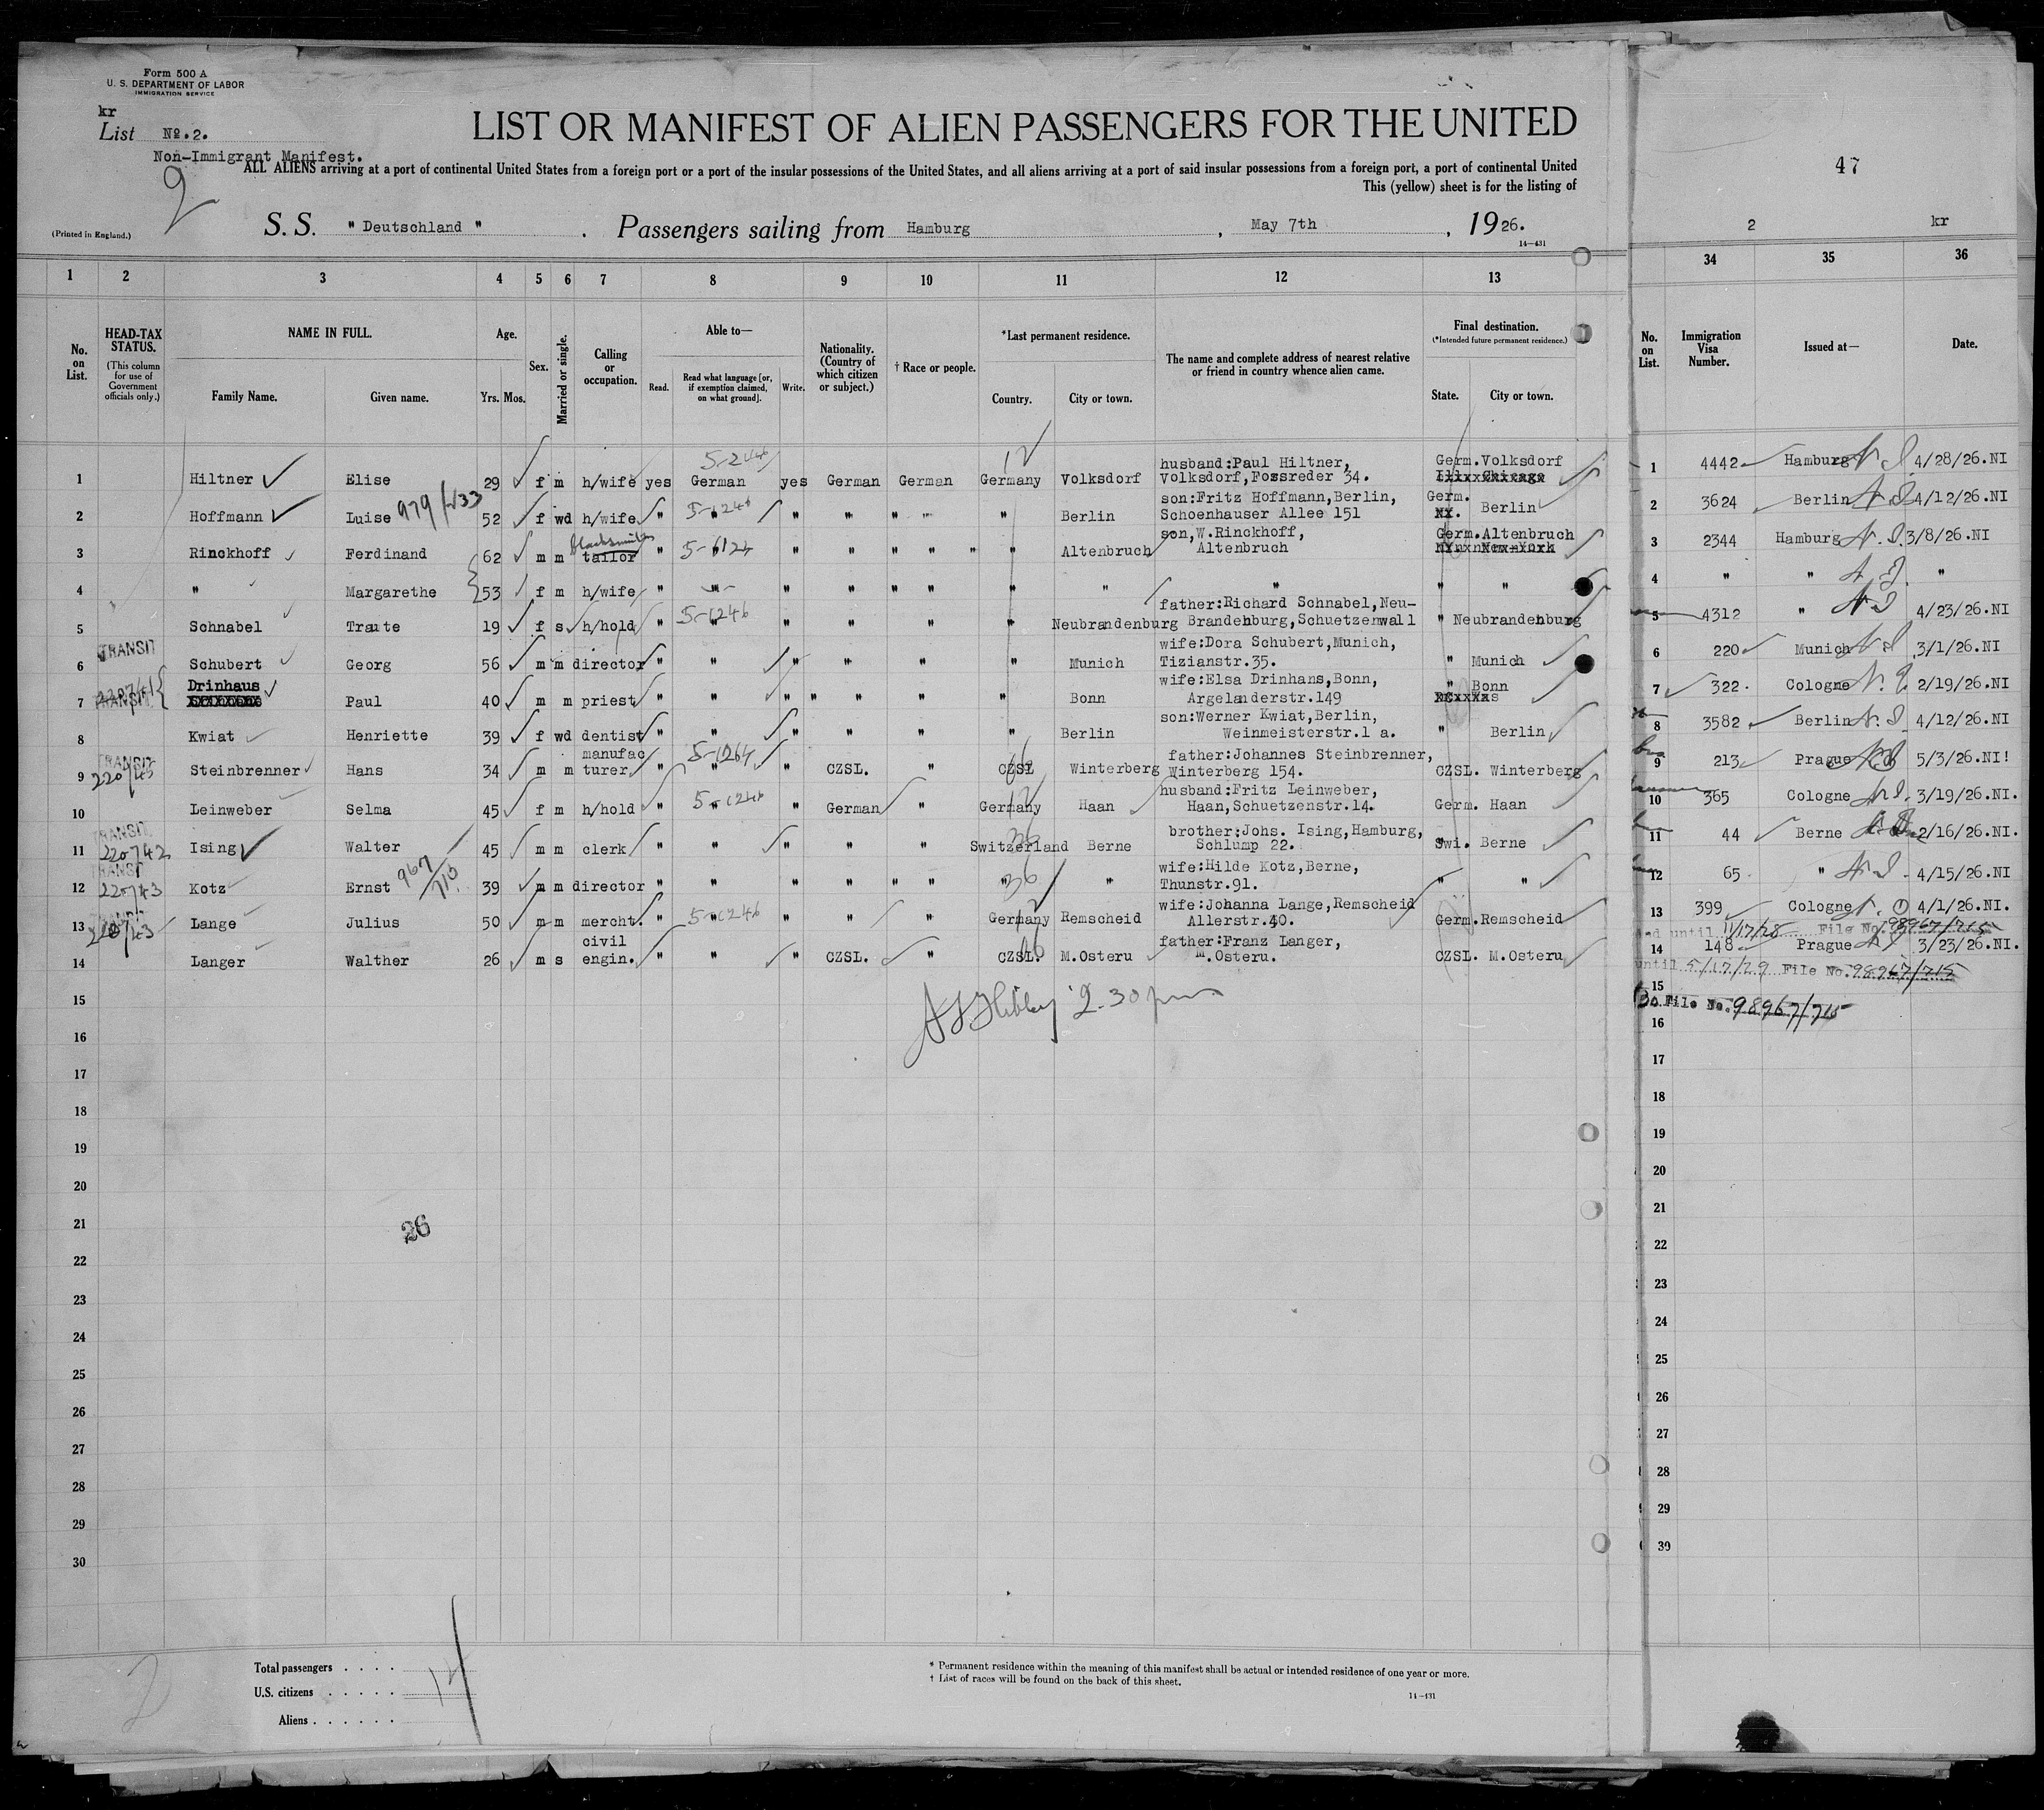 Form 500 A
U. S. DEPARTMENT OF LABOR
IMMIGRATION SERVICE
kr
List No. 2.
Non-Immigrant Manifest.
2
LIST OR MANIFEST OF ALIEN PASSENGERS FOR THE UNITED
ALL ALIENS arriving at a port of continental United States from a foreign port or a port of the insular possessions of the United States, and all aliens arriving at a port of said insular possessions from a foreign port, a port of continental United
This (yellow) sheet is for the listing of
47
(Printed in England.)
S. S. " Deutschland " , Passengers sailing from Hamburg , May 7th , 1926.
14—431
2 kr
1 2 3 4 5 6 7 8 9 10 11 12 13 34 35 36
No. on List.
HEAD-TAX STATUS.
(This column for use of Government officials only.)
NAME IN FULL.
Family Name. Given name.
Age.
Yrs. Mos.
Sex.
Married or single.
Calling or occupation.
Able to—
Read. Read what language [or, if exemption claimed, on what ground]. Write.
Nationality. (Country of which citizen or subject.)
† Race or people.
*Last permanent residence.
Country. City or town.
The name and complete address of nearest relative or friend in country whence alien came.
Final destination.
(*Intended future permanent residence.)
State. City or town.
No. on List.
Immigration Visa Number.
Issued at—
Date.
5-1246
husband:Paul Hiltner, Germ.Volksdorf
1 Hiltner Elise 29 f m h/wife yes German yes German German Germany Volksdorf Volksdorf, Fossreder 34. 1 4442 Hamburg 4/28/26.NI
979/433
son:Fritz Hoffmann,Berlin, Germ.
2 Hoffmann Luise 52 f wd h/wife " 5-1246 " " " " " Berlin Schoenhauser Allee 151 NY. Berlin 2 3624 Berlin 4/12/26.NI
blacksmith son,W.Rinckhoff, Germ.Altenbruch
3 Rinckhoff Ferdinand 62 m m tailor " " " " " " " Altenbruch Altenbruch 3 2344 Hamburg 3/8/26.NI
4 " Margarethe 53 f m h/wife " " " " " " " " " " 4 " " "
father:Richard Schnabel,Neu-
5 Schnabel Traute 19 f s h/hold " 5-1246 " " " " Neubrandenburg Brandenburg,Schuetzenwall " Neubrandenburg 5 4312 " 4/23/26.NI
TRANSIT
wife:Dora Schubert,Munich,
6 Schubert Georg 56 m m director " " " " " " Munich Tizianstr.35. " Munich 6 220 Munich 3/1/26.NI
Drinhaus wife:Elsa Drinhans,Bonn,
7 TRANSIT Paul 40 m m priest " " " " " " " Bonn Argelanderstr.149 " Bonn 7 322. Cologne 2/19/26.NI
son:Werner Kwiat,Berlin,
8 Kwiat Henriette 39 f wd dentist " " " " " " Berlin Weinmeisterstr.1 a. " Berlin 8 3582 Berlin 4/12/26.NI
TRANSIT manufac father:Johannes Steinbrenner,
9 220743 Steinbrenner Hans 34 m m turer " " " CZSL. " CZSL Winterberg Winterberg 154. CZSL. Winterberg 9 213 Prague 5/3/26.NI!
husband:Fritz Leinweber,
10 Leinweber Selma 45 f m h/hold " 5-1246 " German " Germany Haan Haan,Schuetzenstr.14. Germ. Haan 10 365 Cologne 3/19/26.NI.
TRANSIT brother:Johs. Ising,Hamburg,
11 220742 Ising Walter 45 m m clerk " " " " " Switzerland Berne Schlump 22. Swi. Berne 11 44 Berne 2/16/26.NI.
TRANSIT 967/715 wife:Hilde Kotz,Berne,
12 220743 Kotz Ernst 39 m m director " " " " " " " " Thunstr.91. " " 12 65. " 4/15/26.NI
wife:Johanna Lange,Remscheid
13 Lange Julius 50 m m mercht. " 5-1246 " " " Germany Remscheid Allerstr.40. Germ.Remscheid 13 399 Cologne 4/1/26.NI.
until 11/17/28 File No. 98967/715
civil father:Franz Langer,
14 Langer Walther 26 m s engin. " " " CZSL. " CZSL. M.Osteru M.Osteru. CZSL. M.Osteru 14 148 Prague 3/23/26.NI.
until 5/17/29 File No. 98967/715
15 15
File No. 98967/715
2.30 pm
16 16
17 17
18 18
19 19
20 20
21 21
26
22 22
23 23
24 24
25 25
26 26
27 27
28 28
29 29
30 30
Total passengers . . . .
U.S. citizens . . . . . 14
Aliens . . . . . .
* Permanent residence within the meaning of this manifest shall be actual or intended residence of one year or more.
† List of races will be found on the back of this sheet.
14—431